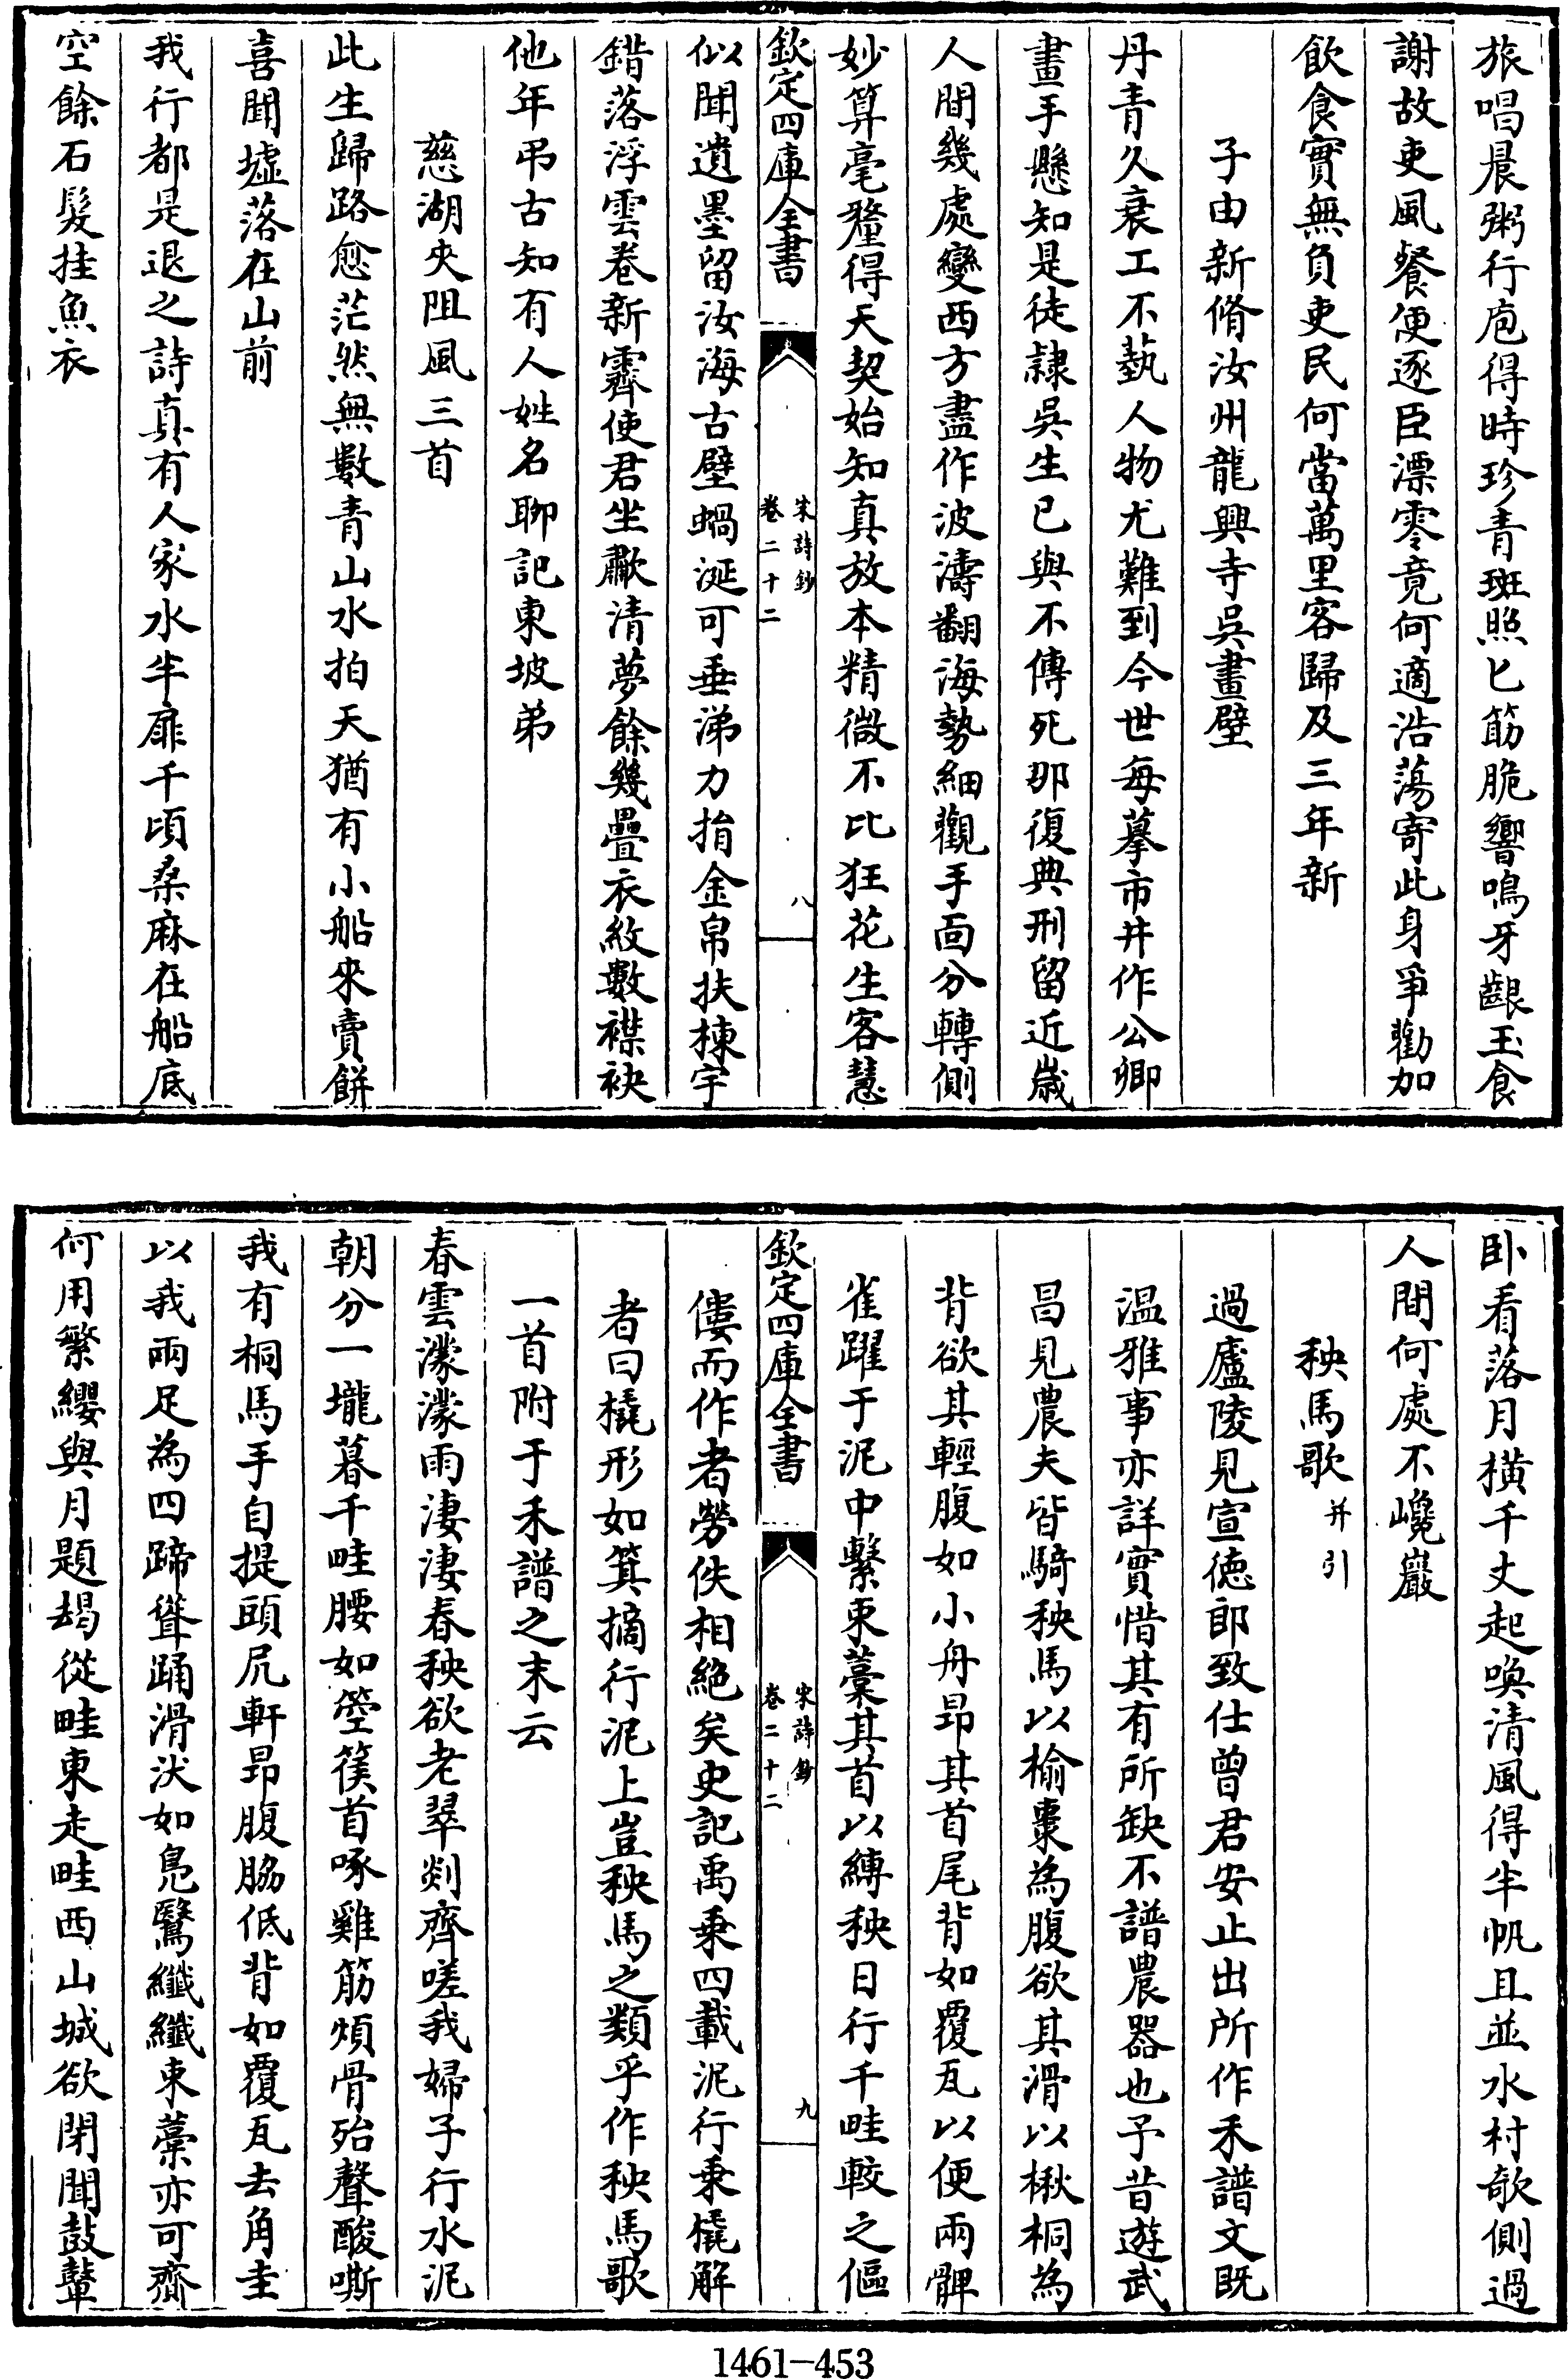 旅唱晨粥行庖得時珍青斑照匕筯脆響鳴牙齦玉食
謝故吏風餐便逐臣漂零竟何適浩蕩寄此身爭勸加
飲食實無負吏民何當萬里客歸及三年新
子由新脩汝州龍興寺吳畫壁
丹青久衰工不藝人物尤難到今世每摹市井作公卿
畫手懸知是徒隸吳生已與不傳死那復典刑留近歲
人間幾處變西方盡作波濤翻海勢細觀手面分轉側
妙算毫釐得天契始知真放本精微不比狂花生客慧
欽定四庫全書
宋詩鈔
卷二十二
八
似聞遺墨留汝海古壁蝸涎可垂涕力捐金帛扶棟宇
錯落浮雲卷新霽使君坐歗清夢餘幾疊衣紋數襟袂
他年弔古知有人姓名聊記東坡弟
慈湖夾阻風三首
此生歸路愈茫然無數青山水拍天猶有小船來賣餅
喜聞墟落在山前
我行都是退之詩真有人家水半扉千頃桑麻在船底
空餘石髮挂魚衣
臥看落月橫千丈起喚清風得半帆且並水村欹側過
人間何處不巉巖
秧馬歌 并引
過廬陵見宣徳郎致仕曾君安止出所作禾譜文既
溫雅事亦詳實惜其有所缺不譜農器也予昔遊武
昌見農夫皆騎秧馬以榆棗為腹欲其滑以楸桐為
背欲其輕腹如小舟昂其首尾背如覆瓦以便兩髀
雀躍于泥中繫束藁其首以縛秧日行千畦較之傴
欽定四庫全書
宋詩鈔
卷二十二
九
僂而作者勞佚相絶矣史記禹乘四載泥行乘橇解
者曰橇形如箕擿行泥上豈秧馬之類乎作秧馬歌
一首附于禾譜之末云
春雲濛濛雨淒淒春秧欲老翠剡齊嗟我婦子行水泥
朝分一壠暮千畦腰如箜篌首啄雞筋煩骨殆聲酸嘶
我有桐馬手自提頭尻軒昂腹脇低背如覆瓦去角圭
以我兩足為四蹄聳踊滑汱如鳧鷖纖纖束藁亦可齎
何用繁纓與月題朅從畦東走畦西山城欲閉聞鼓鼙
1461-453